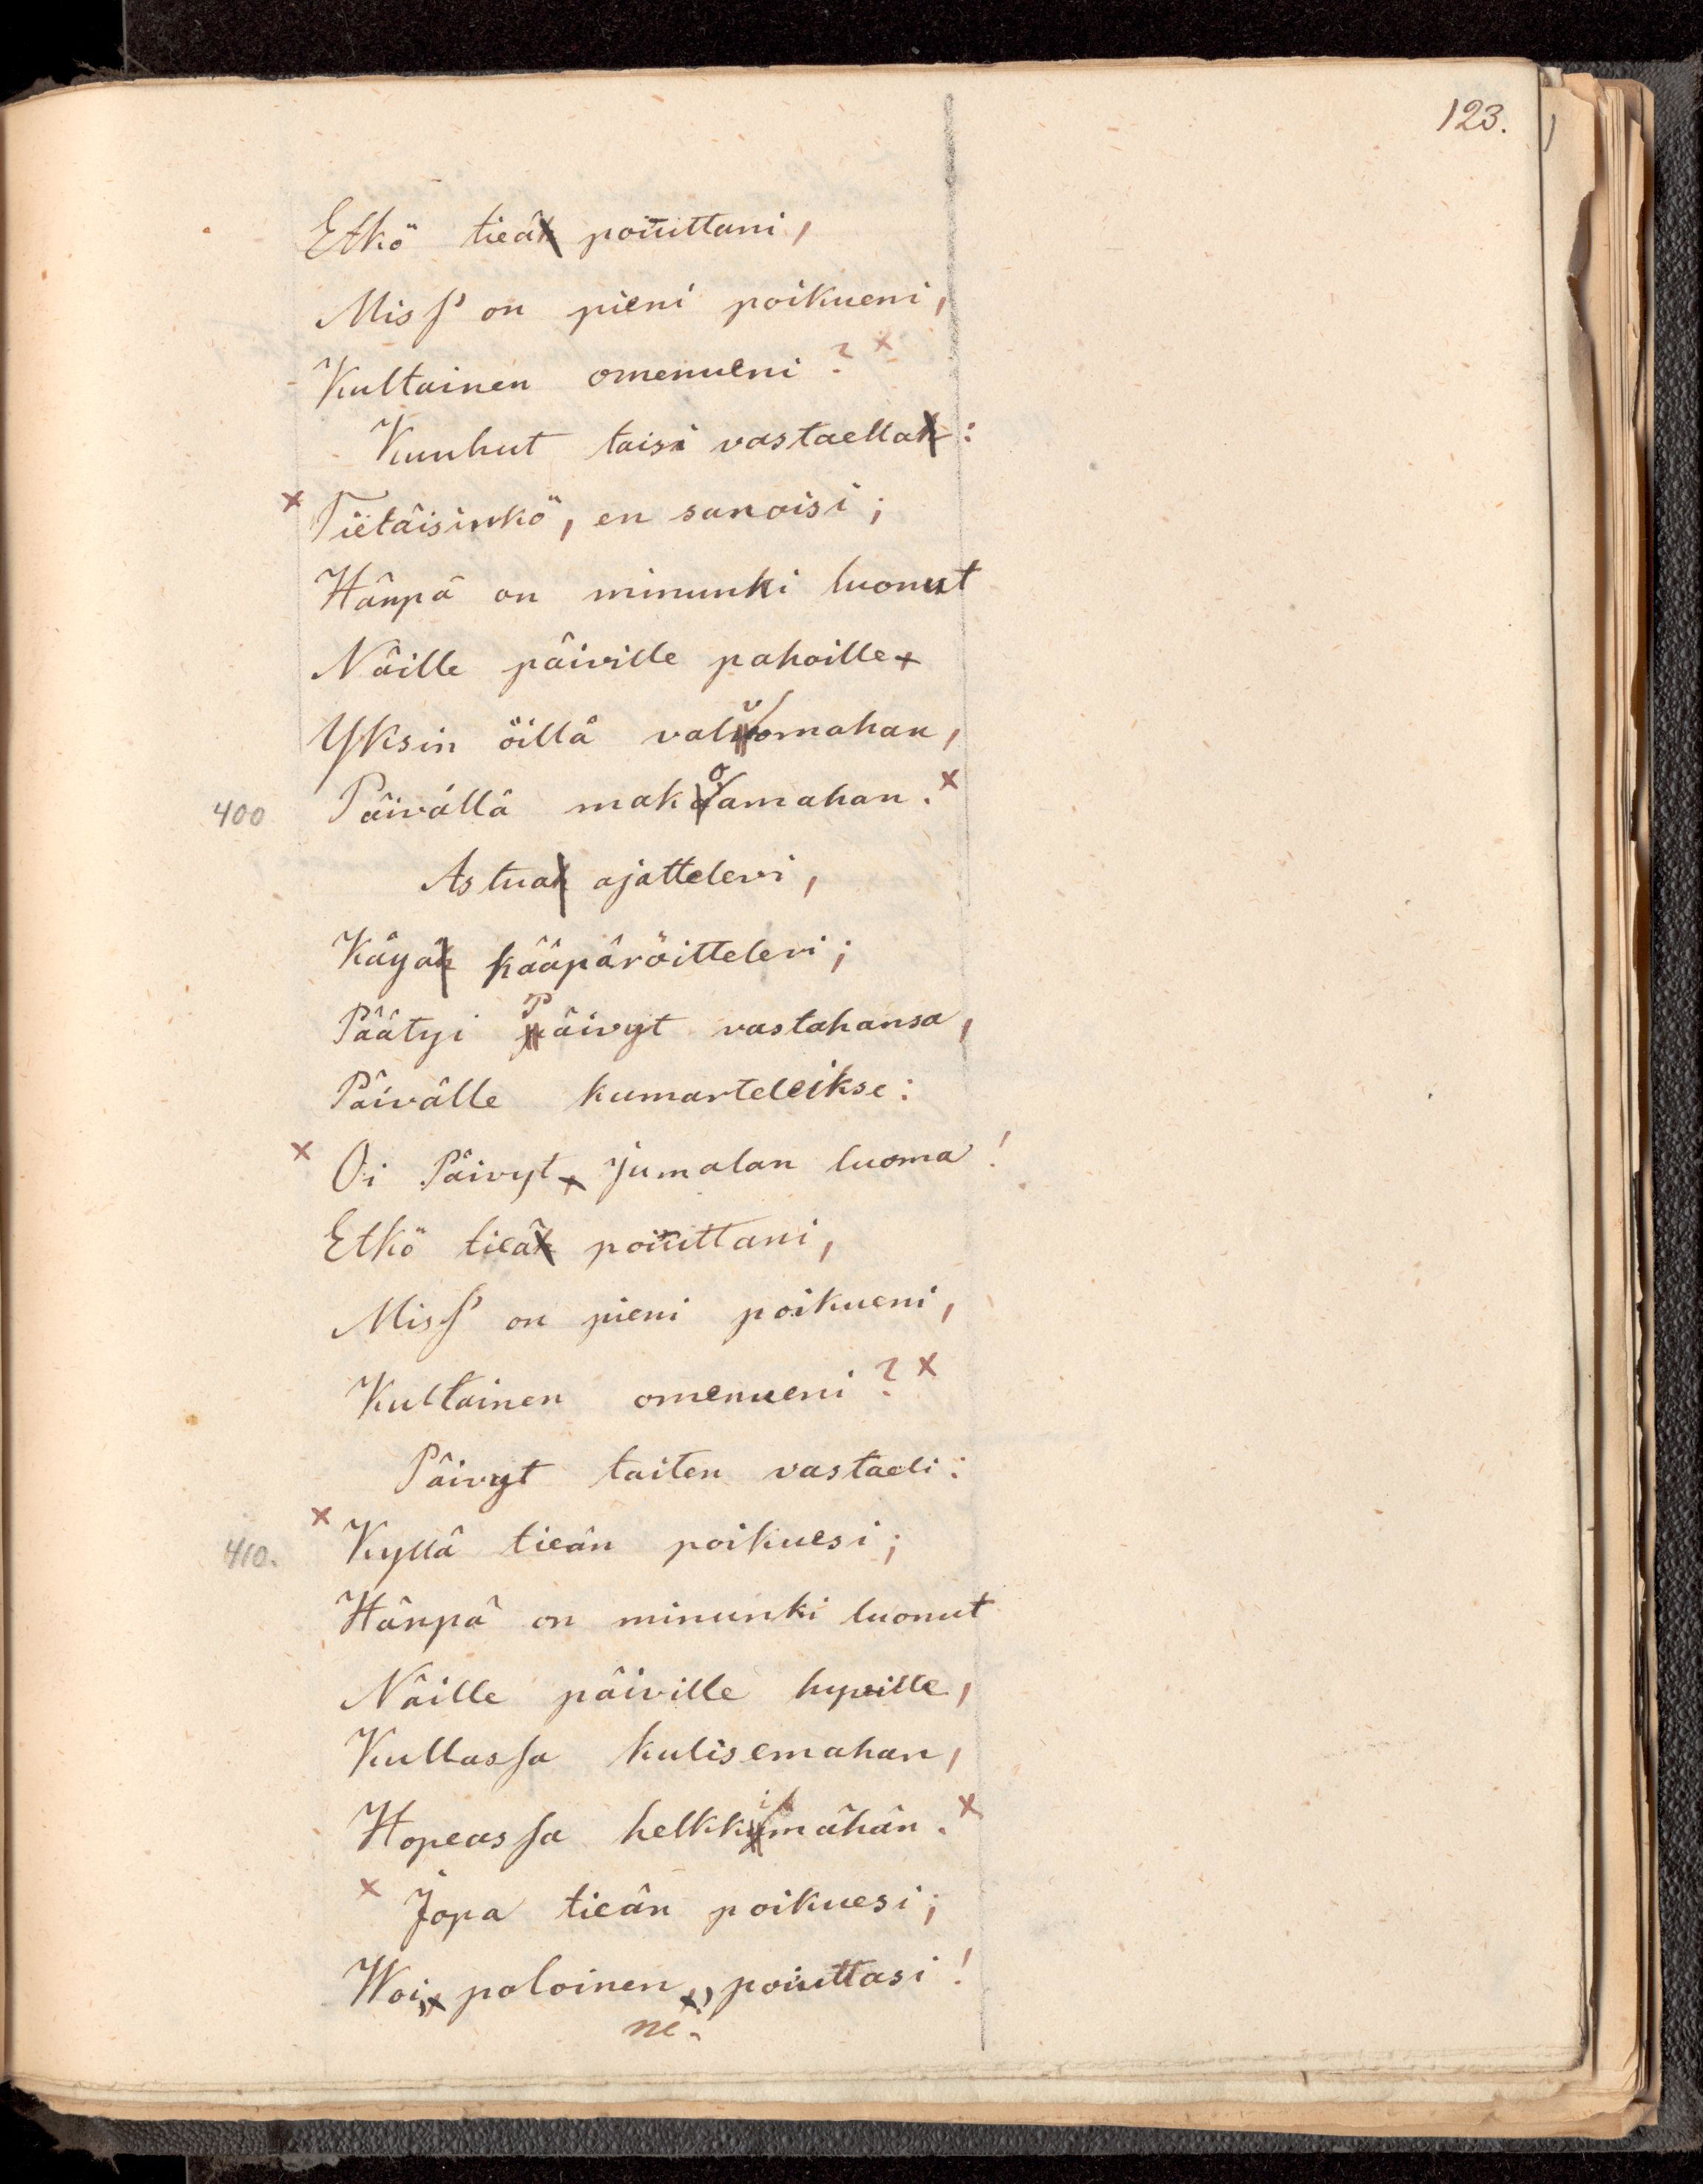 123.
Etkö tieä poiuttani,
Miss' on pieni poikueni,
Kultainen omenueni? ×
Kuuhut taisi vastaella:
× Tietäisinkö, en sanoisi;
Hänpä on minunki luonut
Näille päiville pahoille
Yksin öillä valvomahan,
400 Päivällä makoamahan. ×
Astua ajattelevi,
Käyä kääpäröittelevi;
Päätyi Päivyt vastahansa,
Päivälle kumarteleikse:
× Oi Päivyt Jumalan luoma!
Etkö tieä poiuttani,
Miss' on pieni poikueni,
Kultainen omenueni? ×
Päivyt taiten vastaeli:
410. × Kyllä tieän poikuesi;
Hänpä on minunki luonut
Näille päiville hyville,
Kullassa kulisemahan,
Hopeassa helkkimähän. ×
× Jopa tieän poikuesi;
Woi poloinen, poiuttasi!
ne.